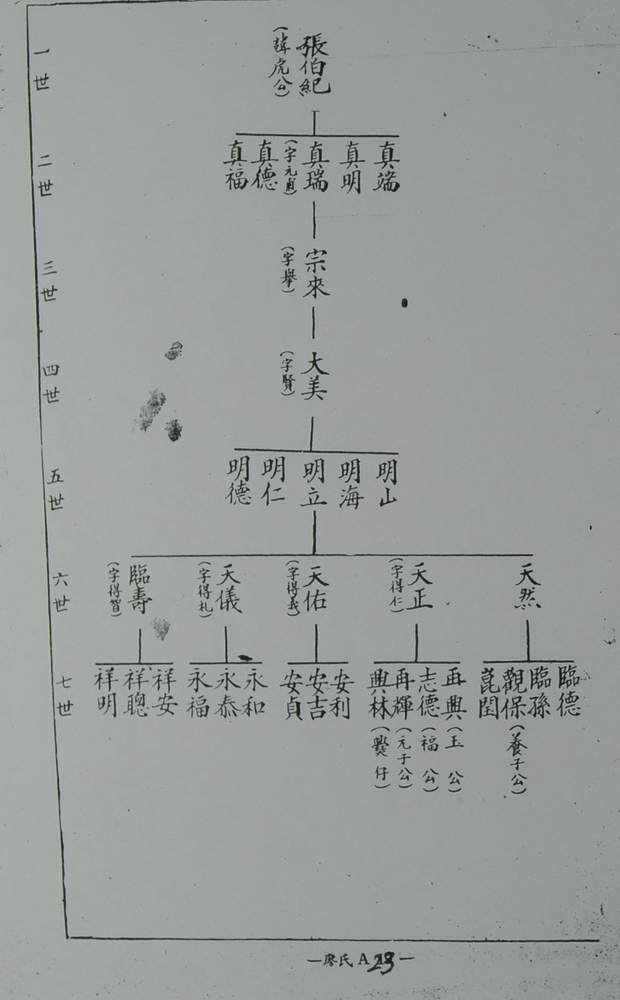 一世
張伯紀
(諱虎公)
二世
真端
真明
真瑞
(字元甫)
真德
真福
三世
宗來
(字舉)
四世
大美
(字賢)
五世
明山
明海
明立
明仁
明德
六世
天然
天正
(字得仁)
天佑
(字得義)
天儀
(字得礼)
臨壽
(字得智)
七世
臨德
臨孫
觀保(養子公)
崑閏
再興(玉公)
志德(福公)
再輝(元于公)
興林(爨仔)
安利
安吉
安貞
永和
永泰
永福
祥安
祥聰
祥明
—廖氏 A 23—